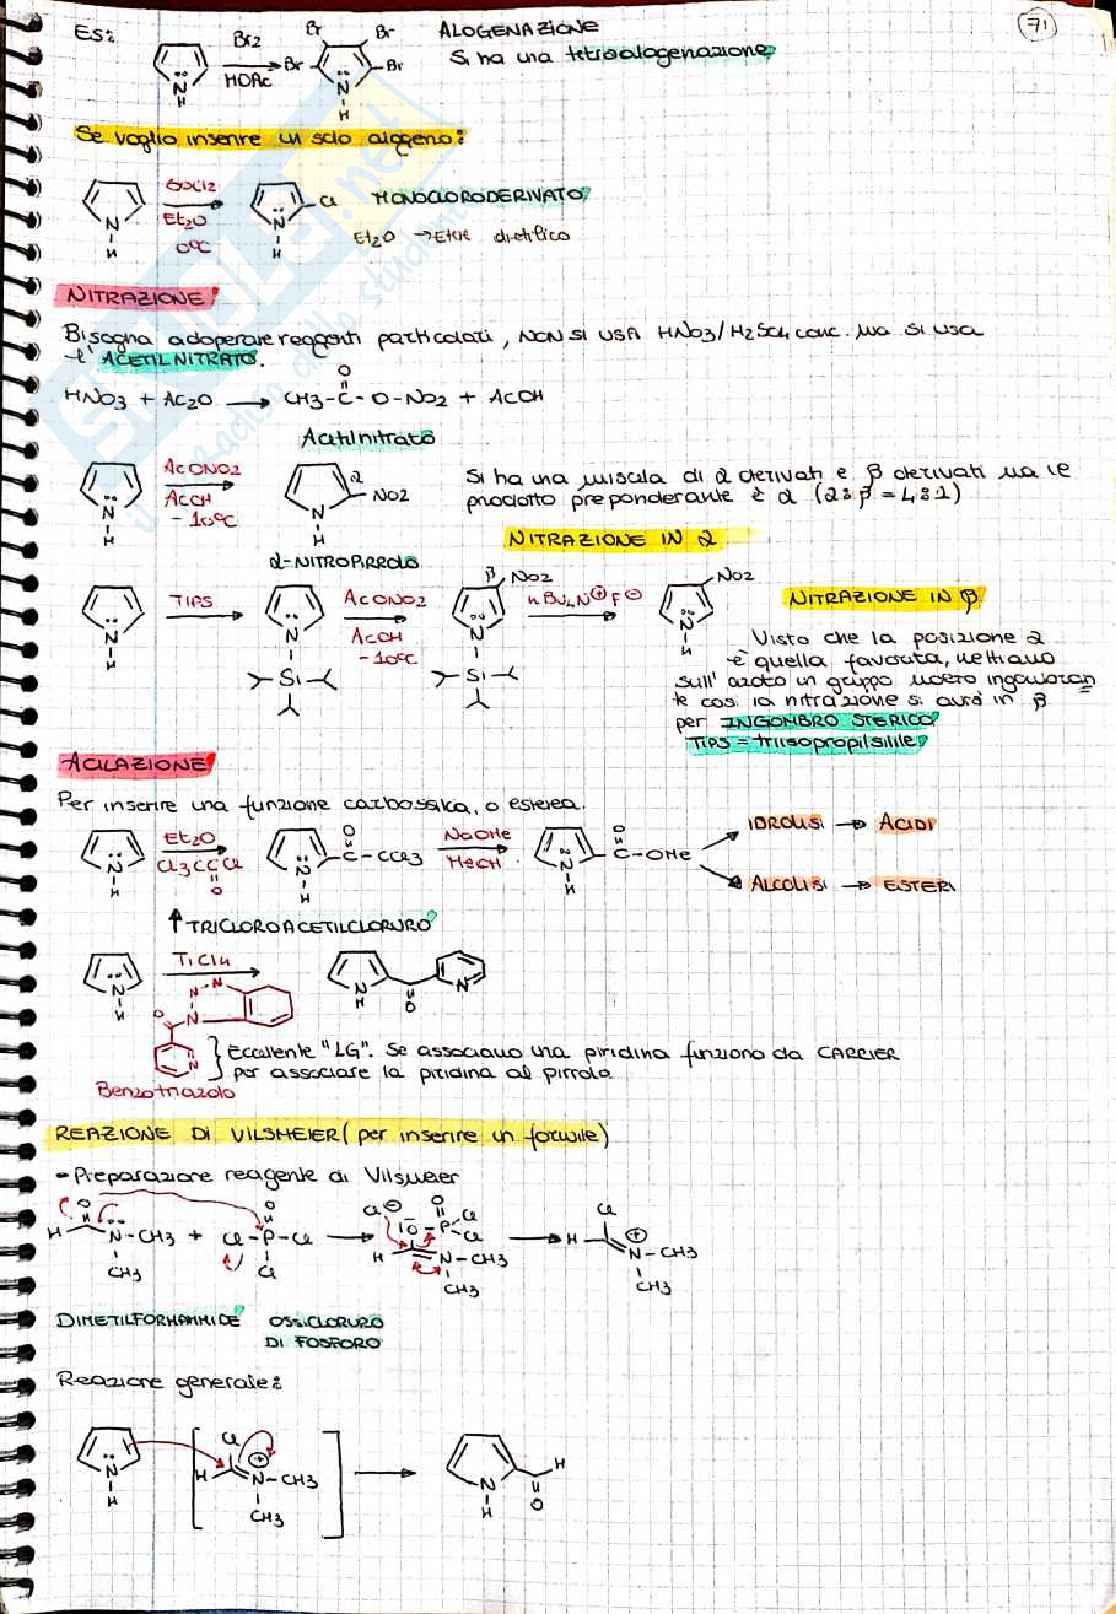 71
ES: Br2 HOAc Br Br Br Br N H N H ALOGENAZIONE
Si ha una tetraalogenazione
Se voglio inserire un solo alogeno:
N H SOCl2 Et2O 0°C N H Cl MONOCLORODERIVATO
Et2O → Etere dietilico
NITRAZIONE:
Bisogna adoperare reagenti particolari, NON SI USA HNO3/H2SO4 conc. ma si usa
l'ACETIL NITRATO.
HNO3 + AC2O → CH3-C-O-NO2 + ACOH
O
Acetilnitrato
N H ACONO2 ACOH -10°C N H α NO2
Si ha una miscela di α derivati e β derivati ma il
prodotto preponderante è α (α:β = 4:1)
NITRAZIONE IN α
α-NITROPIRROLO
N H TIPS N Si ACONO2 ACOH -10°C β NO2 N Si nBu4N⊕F⊖ NO2 N H
NITRAZIONE IN β
Visto che la posizione α
è quella favorita, mettiamo
sull'azoto un gruppo molto ingombran
te così la nitrazione si avrà in β
per INGOMBRO STERICO
TIPS = triisopropilsilile
ACILAZIONE
Per inserire una funzione carbossilica, o esterea.
N H Et2O Cl3CCCl O N H O C-CCl3 NaOMe MeOH N H O C-OMe
IDROLISI → ACIDI
ALCOLISI → ESTERI
↑ TRICLOROACETILCLORURO
N H TiCl4 N N N O N N H O N
Eccellente "LG". Se associamo una piridina funziona da CARRIER
per associare la piridina al pirrolo
Benzotriazolo
REAZIONE DI VILSMEIER (per inserire un formile)
- Preparazione reagente di Vilsmeier
H O N-CH3 CH3 + Cl-P-Cl O Cl → Cl⊖ O O-P Cl Cl H N-CH3 CH3 → Cl H ⊕ N-CH3 CH3
DIMETILFORMAMMIDE OSSICLORURO
DI FOSFORO
Reazione generale:
N H Cl H ⊕ N-CH3 CH3 → N H H O